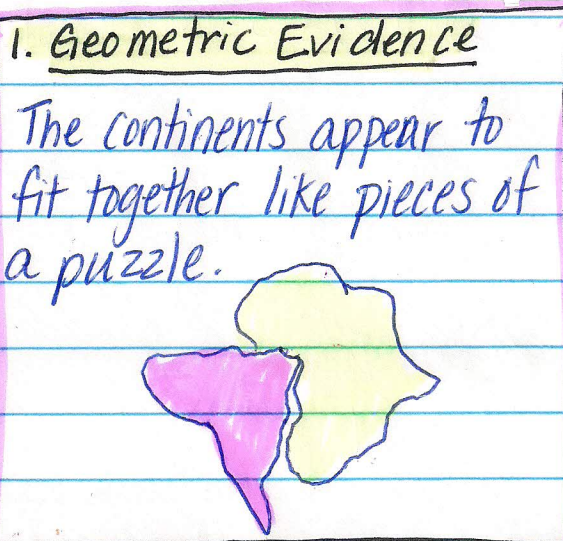 1. Geometric Evidence
The continents appear to
fit together like pieces of
a puzzle.